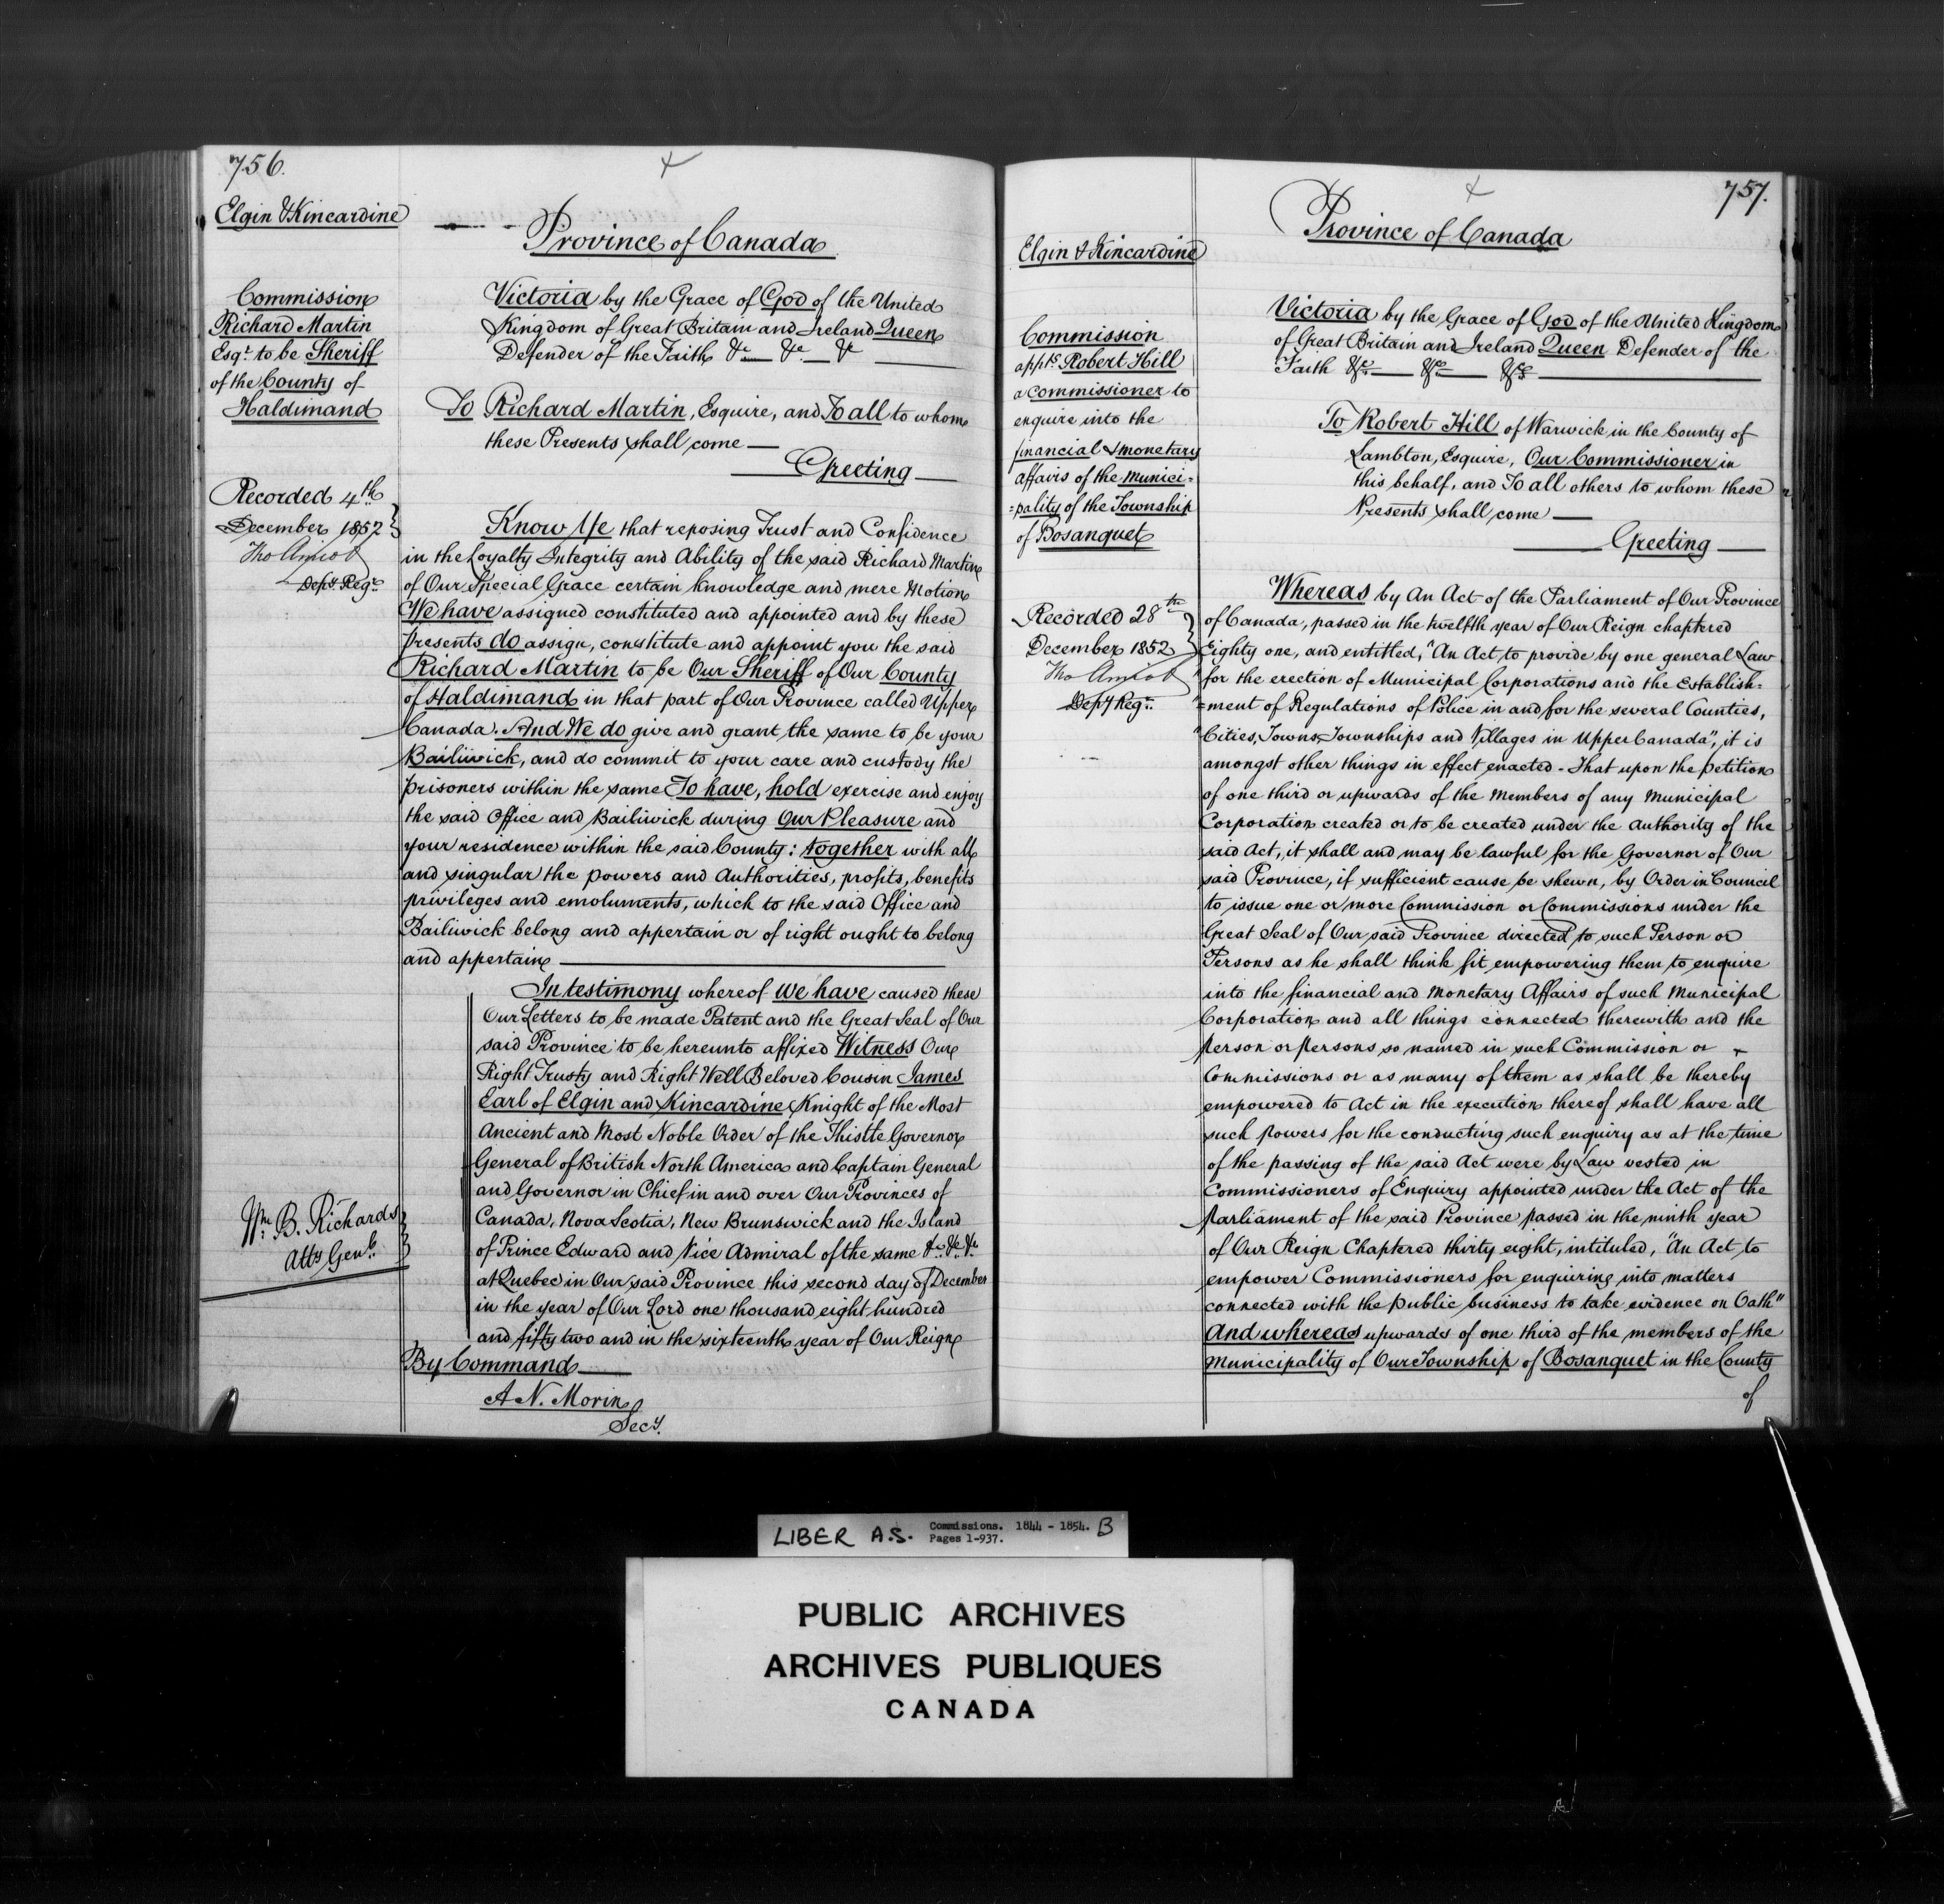 756.
Elgin & Kincardine
Province of Canada
Commission
Richard Martin
Esqr. to be Sheriff
of the County of
Haldimand
Recorded 4th
December 1852
Tho Amiot
Depy. Regr.
Victoria by the Grace of God of the United
Kingdom of Great Britain and Ireland Queen
Defender of the Faith &c &c &c
To Richard Martin, Esquire, and To all to whom
these Presents shall come
Greeting
Know Ye that reposing Trust and Confidence
in the Loyalty Integrity and Ability of the said Richard Martin
of Our Special Grace certain knowledge and mere Motion
We have assigned constituted and appointed and by these
presents do assign, constitute and appoint you the said
Richard Martin to be Our Sheriff of Our County
of Haldimand in that part of Our Province called Upper
Canada. And We do give and grant the same to be your
Bailiwick, and do commit to your care and custody the
prisoners within the same To have, hold exercise and enjoy
the said Office and Bailiwick during Our Pleasure and
your residence within the said County: together with all
and singular the powers and Authorities, profits, benefits
privileges and emoluments, which to the said Office and
Bailiwick belong and appertain or of right ought to belong
and appertain
In testimony whereof We have caused these
Our Letters to be made Patent and the Great Seal of Our
said Province to be hereunto affixed Witness Our
Right Trusty and Right Well Beloved Cousin James
Earl of Elgin and Kincardine Knight of the Most
Ancient and Most Noble Order of the Thistle Governor
General of British North America and Captain General
and Governor in Chief in and over Our Provinces of
Canada, Nova Scotia, New Brunswick and the Island
of Prince Edward and Vice Admiral of the same &c. &c. &c.
at Quebec in Our said Province this second day of December
in the year of Our Lord one thousand eight hundred
and fifty two and in the sixteenth year of Our Reign
Wm. B. Richards
Atty Genl.
By Command
A N. Morin
Secy.
757.
Province of Canada
Elgin & Kincardine
Commission
appts. Robert Hill
a Commissioner to
enquire into the
financial & monetary
affairs of the Munici=
=pality of the Township
of Bosanquet
Recorded 28th
December 1852
Tho Amiot
Depy Regr.
Victoria by the Grace of God of the United Kingdom
of Great Britain and Ireland Queen Defender of the
Faith &c. &c. &c.
To Robert Hill of Warwick in the County of
Lambton, Esquire, Our Commissioner in
this behalf, and To all others to whom these
Presents shall come
Greeting
Whereas by An Act of the Parliament of Our Province
of Canada, passed in the twelfth year of Our Reign chaptered
Eighty one, and entitled, "An Act, to provide by one general Law
"for the erection of Municipal Corporations and the Establish=
"=ment of Regulations of Police in and for the several Counties,
"Cities, Towns, Townships and Villages in Upper Canada", it is
amongst other things in effect enacted - That upon the petition
of one third or upwards of the Members of any Municipal
Corporation created or to be created under the authority of the
said Act, it shall and may be lawful for the Governor of Our
said Province, if sufficient cause be shewn, by Order in Council
to issue one or more Commission or Commissions under the
Great Seal of Our said Province directed to such Person or
Persons as he shall think fit empowering them to enquire
into the financial and Monetary Affairs of such Municipal
Corporation and all things connected therewith and the
person or persons so named in such Commission or
Commissions or as many of them as shall be thereby
empowered to Act in the execution thereof shall have all
such powers for the conducting such enquiry as at the time
of the passing of the said Act were by Law vested in
Commissioners of Enquiry appointed under the Act of the
Parliament of the said Province passed in the ninth year
of Our Reign Chaptered thirty eight, intituled, "An Act to
empower Commissioners for enquiring into matters
connected with the public business to take evidence on Oath"
And whereas upwards of one third of the members of the
Municipality of Our Township of Bosanquet in the County
of
LIBER A.S. Commissions. 1844 - 1854. B
Pages 1-937.
PUBLIC ARCHIVES
ARCHIVES PUBLIQUES
CANADA